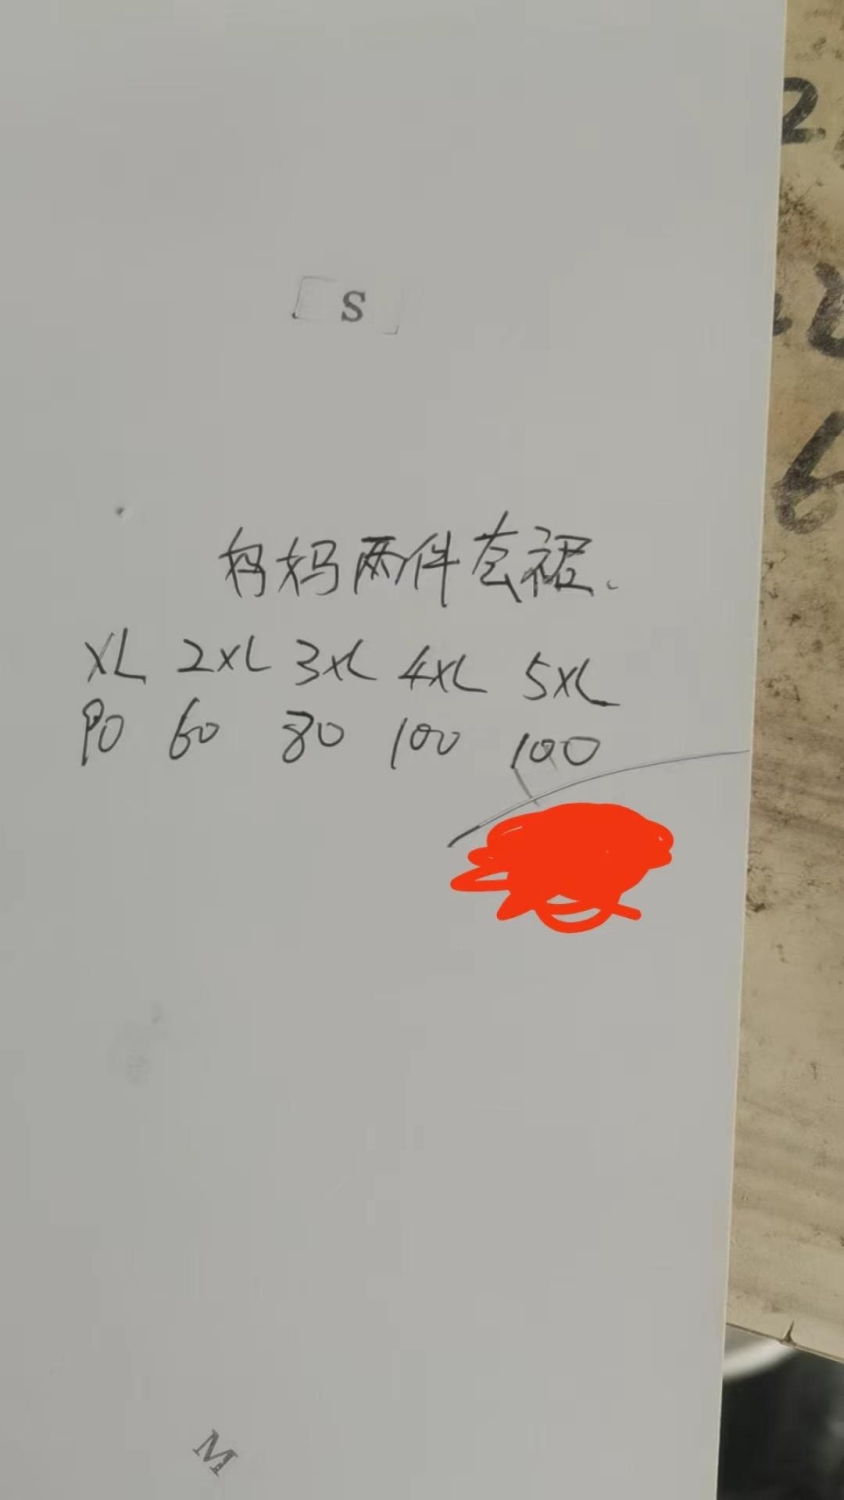 S
妈妈两件套裙.
XL 2XL 3XL 4XL 5XL
90 60 80 100 100
M